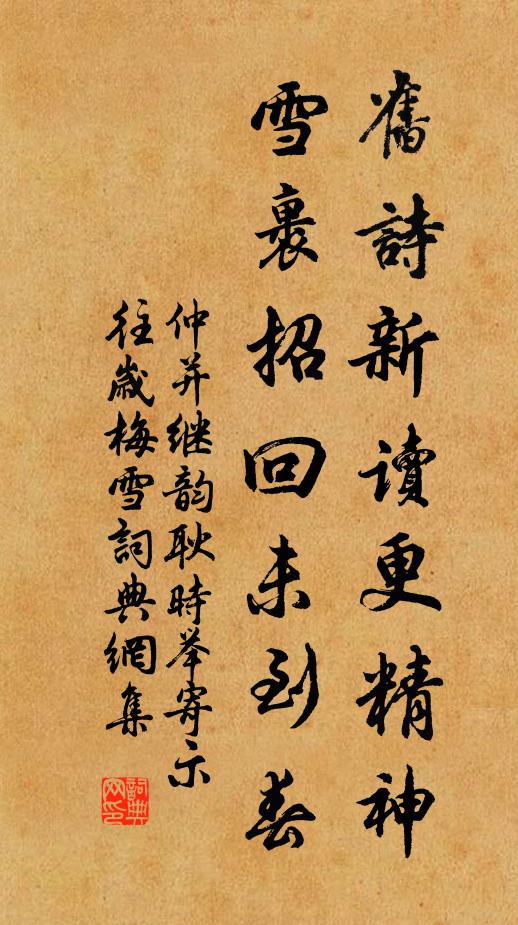 舊詩新讀更精神
雪裏招回未到春
仲并继韵耿時举寄示
往歲梅雪詞典網集
詞典网印